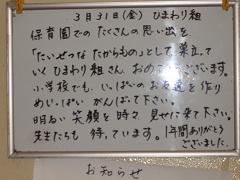 3月31日(金) ひまわり組
保育園での たくさんの思い出を
「たいせつな たからもの」として 巣立って
いく ひまわり組さん、おめでとうございます。
小学校でも、いっぱいの お友達を作り
めいっぱい がんばって下さい。
明るい 笑顔を 時々 見せに来て下さい。
先生たちも 待っています。1年間ありがとう
ございました。
お知らせ